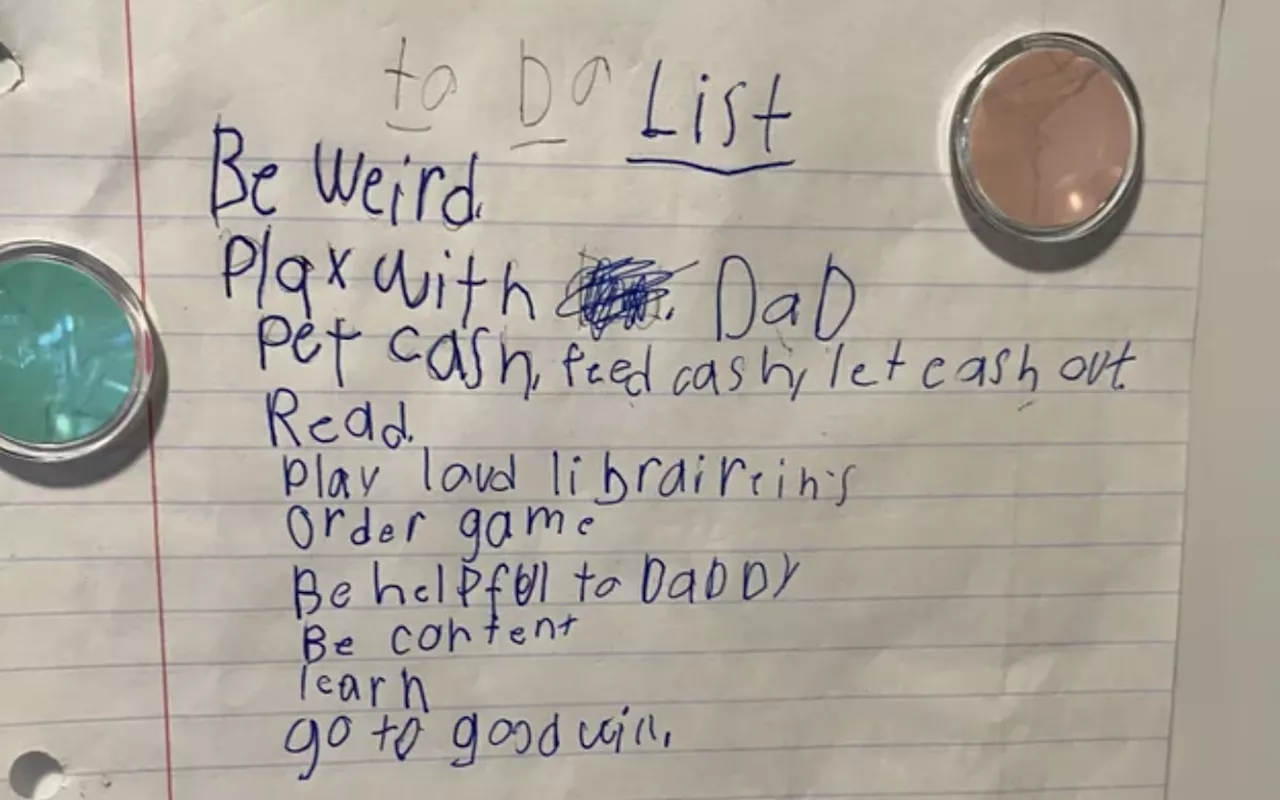 to Do List
Be Weird.
Play with DaD
Pet cash, feed cash, let cash out
Read.
Play loud librairein's
Order game
Be helpful to DaDDy
Be content
learn
go to good will.